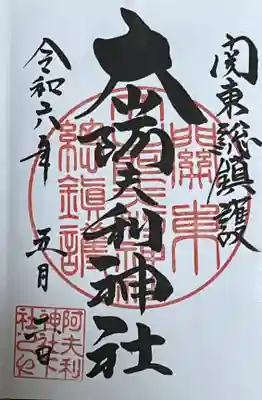 関東総鎮護
大山阿夫利神社
令和六年 五月 日
關東
總鎮護
阿夫利
神社下
社之印